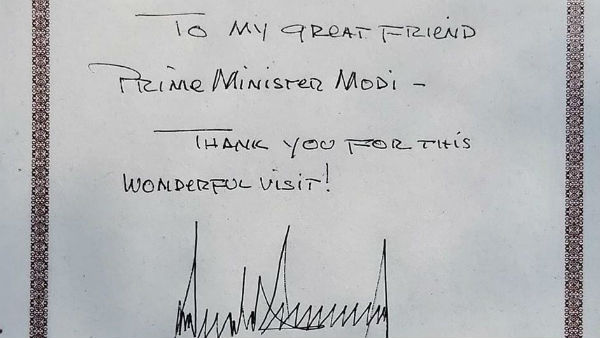 To MY GREAT FRIEND
PRIME MINISTER MODI -
THANK YOU FOR THIS
WONDERFUL VISIT!